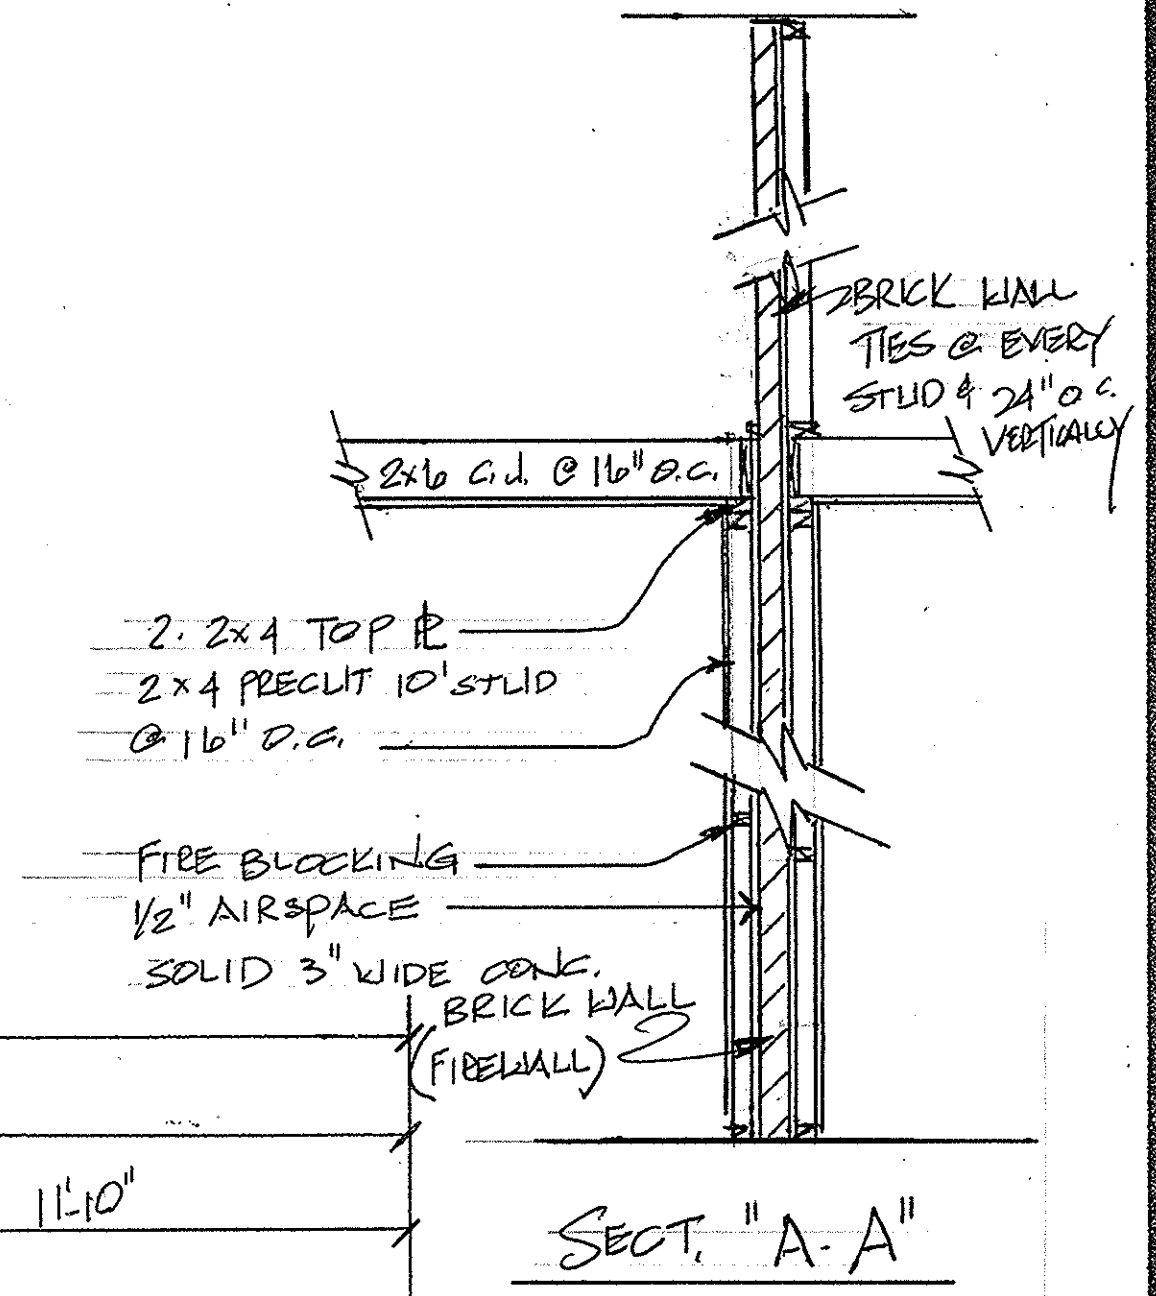 BRICK WALL
TIES @ EVERY
STUD & 24" O.C.
VERTICALLY
2x6 C.J. @ 16" O.C.
2. 2x4 TOP PL
2x4 PRECUT 10' STUD
@ 16" O.C.
FIRE BLOCKING
1/2" AIRSPACE
SOLID 3" WIDE CONC.
BRICK WALL
(FIREWALL)
11'-10"
SECT. "A-A"